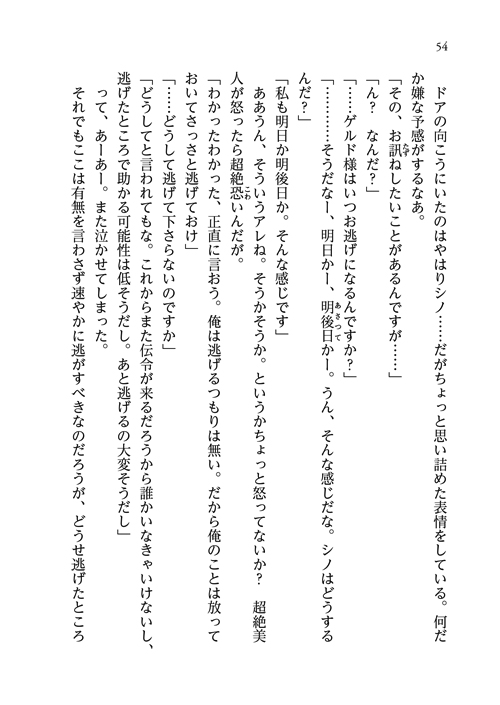 54
ドアの向こうにいたのはやはりシノ……だがちょっと思い詰めた表情をしている。何だ
か嫌な予感がするなあ。
「その、お訊たずねしたいことがあるんですが……」
「ん？　なんだ？」
「……ゲルド様はいつお逃げになるんですか？」
「…………そうだなー、明日かー、明後日あさってかー。うん、そんな感じだな。シノはどうする
んだ？」
「私も明日か明後日か。そんな感じです」
ああうん、そういうアレね。そうかそうか。というかちょっと怒ってないか？　超絶美
人が怒ったら超絶恐こわいんだが。
「わかったわかった、正直に言おう。俺は逃げるつもりは無い。だから俺のことは放って
おいてさっさと逃げておけ」
「……どうして逃げて下さらないのですか」
「どうしてと言われてもな。これからまた伝令が来るだろうから誰かいなきゃいけないし、
逃げたところで助かる可能性は低そうだし。あと逃げるの大変そうだし」
って、あーあー。また泣かせてしまった。
それでもここは有無を言わさず速やかに逃がすべきなのだろうが、どうせ逃げたところ